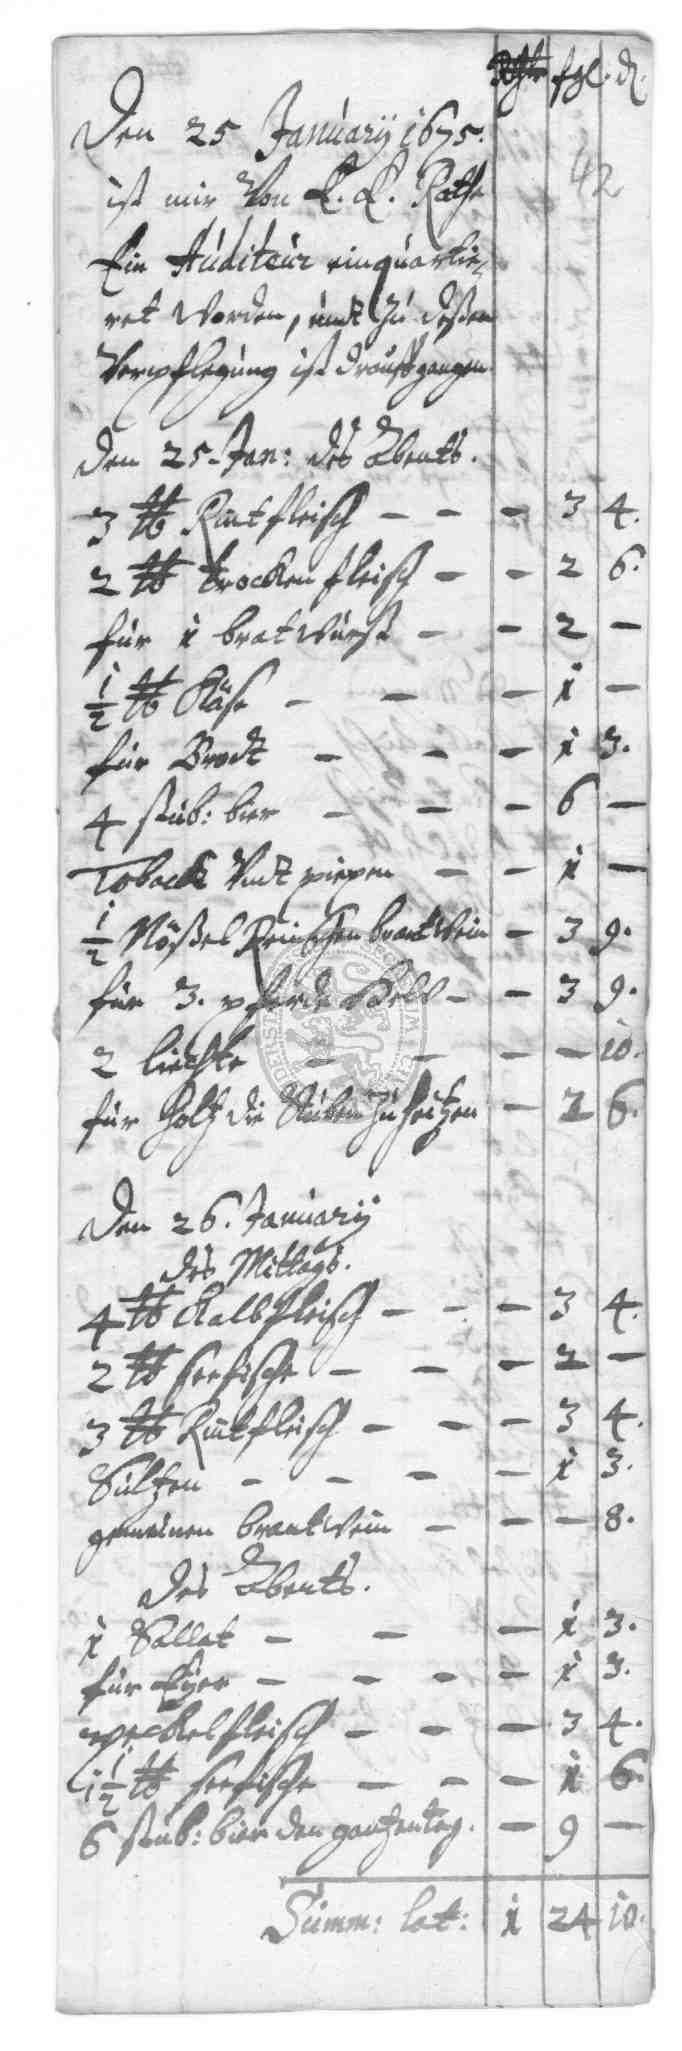 Rthlr fgl. d.
42
Den 25 January 1675.
ist mir Von E. E. Rathe
Ein Auditeur einquartie-
ret worden, undt zu deßen
Verpflegung ist drauffgangen.
den 25. Jan: des Abents.
3 ℔ Rintfleisch – – – 3 4.
2 ℔ trocken fleisch – – 2 6.
für 1 bratwurst – – 2 –
1/2 ℔ Käse – – – 1 –
für Brodt – – – 1 3.
4 stüb: bier – – – 6 –
Toback Undt piepen – – 1 –
1/2 Nößel Reinischen brantwein – 3 9.
für 3. pferde – – 3 9.
2 liechte – – – – 10.
für Holtz die Stuben zu heitzen – 2 6.
Den 26. January
des Mittags.
4 ℔ Kalbfleisch – – – 3 4.
2 ℔ seefische – – – 2 –
3 ℔ Rintfleisch – – – 3 4.
Sultzen – – – – 1 3.
gemeinen brantwein – – – 8.
des Abents.
1 Sallat – – – 1 3.
für Eyer – – – – 1 3.
peckelfleisch – – – 3 4.
1 1/2 ℔ seefische – – – 1 6.
6 stüb: bier den gantzen tag. – 9 –
Summ: lat: 1 24 10.